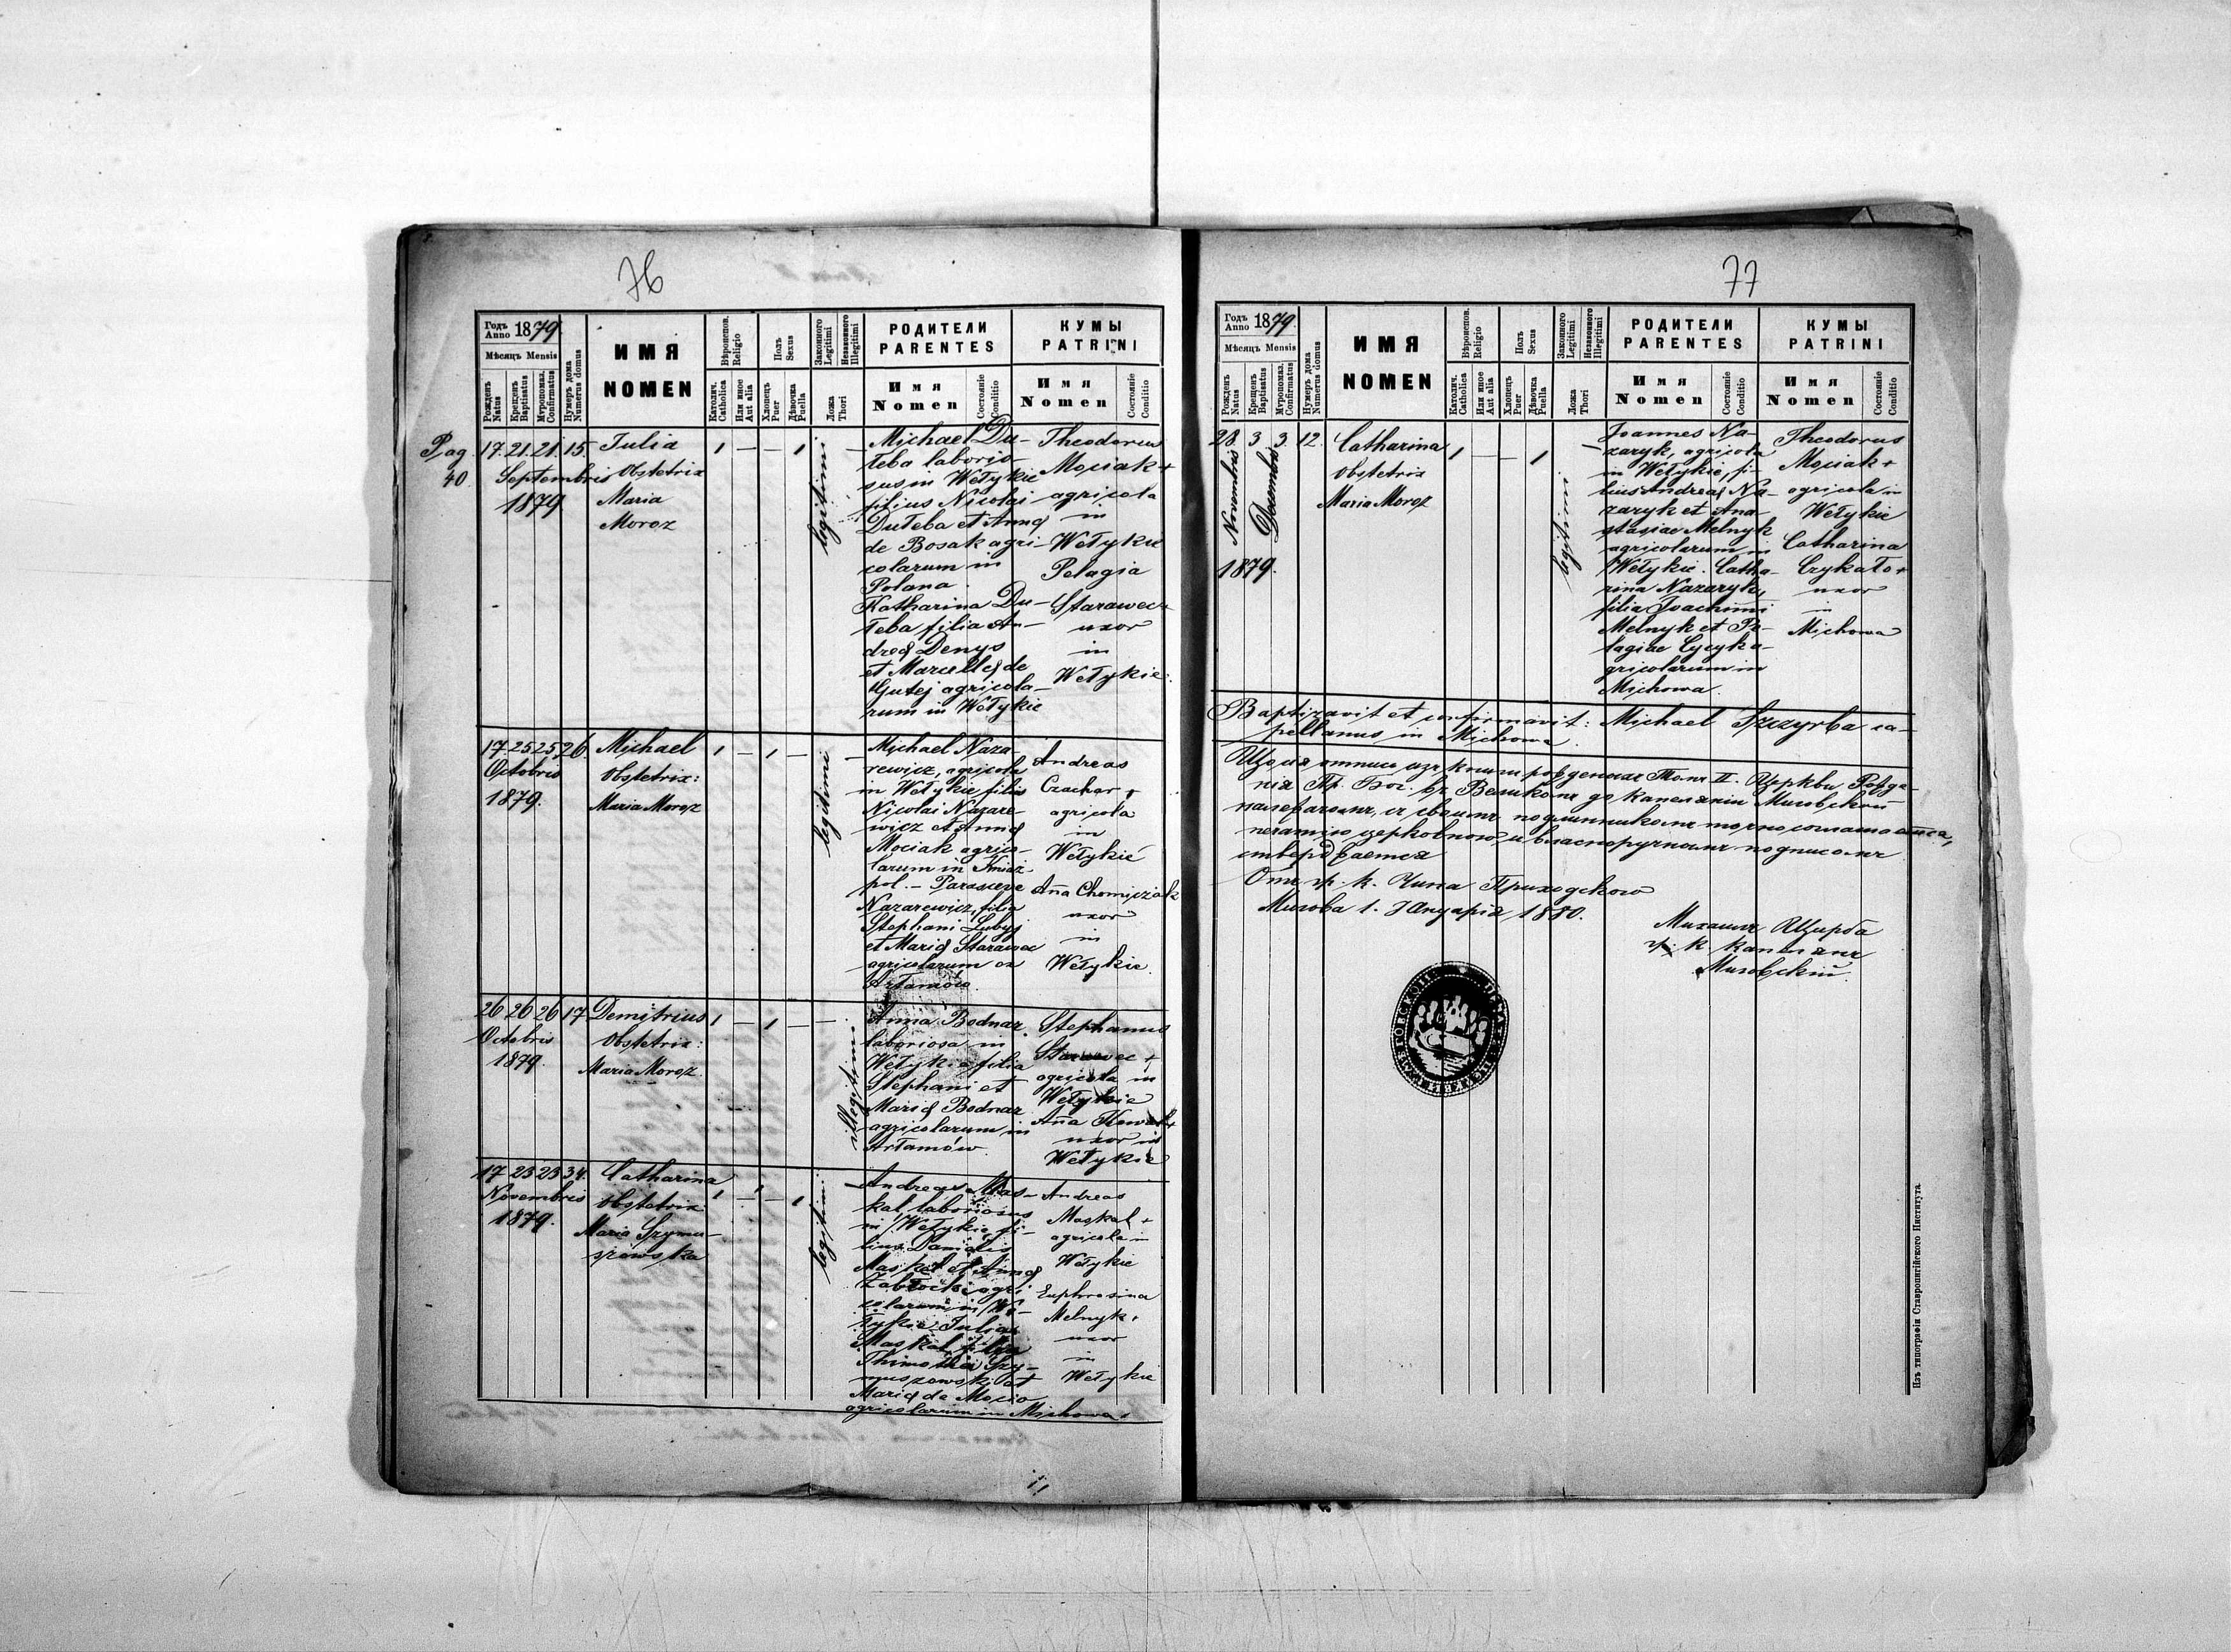 76
Годъ Anno 1879.
Мѣсяцъ Mensis
Рожденъ Natus
Крещенъ Baptisatus
Мѵропомаз. Confirmatus
Нумеръ дома Numerus domus
ИМЯ
NOMEN
Вѣроиспов. Religio
Католич. Catholica
Или иное Aut alia
Полъ Sexus
Хлопецъ Puer
Дѣвочка Puella
Законного Legitimi
Незаконного Illegitimi
Ложа Thori
РОДИТЕЛИ
PARENTES
Имя Nomen
Состояніе Conditio
КУМЫ
PATRINI
Имя Nomen
Состояніе Conditio
Pag.
40.
17. 21. 21. 15.
Septembris
1879
Julia
Obstetrix
Maria
Moroz
1 — — 1
legitimi
Michael Du-
łeba laborio-
sus in Wełykie
filius Nicolai
Dułeba et Annę
de Bosak agri-
colarum in
Polana.
Katharina Du-
łeba filia An-
dreę Denys
et Marcellę de
agricola-
rum in Wełykie
Theodorus
Mociak +
agricola
in
Wełykie
Pelagia
Starawec +
uxor
in
Wełykie.
17 25 25 26.
Octobris
1879.
Michael
Obstetrix:
Maria Moroz
1 — 1 —
legitimi
Michael Naza-
rewicz, agricola
in Wełykie filius
Nicolai Nazare-
wicz et Annę
Mociak agrico-
larum in Kniaz-
pol. — Parasceve
Nazarewicz, filia
Stephani Łubyj
et Marię Starawec
agricolarum ex
Artamów.
Andreas
Czachor +
agricola
in
Wełykie
Aña Chomiczak
uxor
in
Wełykie.
26 26 26 17
Octobris
1879.
Demitrius
Obstetrix:
Maria Moroz.
1 — 1 — —
illegitimi
Anna Bodnar
laboriosa in
Wełykie filia
Stephani et
Marię Bodnar
agricolarum in
Artamów.
Stephanus
Starawec +
agricola in
Wełykie
Aña
uxor in
Wełykie
17 23 23 34.
Novembris
1879.
Catharina
Obstetrix:
Maria Szymu-
szewska
1 — 1
legitimi
Andreas Mas-
kal laboriosus
in Wełykie fi-
lius Danielis
Maskal et Annę
agri-
colarum in We-
łykie. Julia
Maskal filia
Thimothei Szy-
muszowski et
Marię de Mocio
agricolarum in Michowa.
Andreas
Maskal +
agricola in
Wełykie
Euphrosina
Melnyk +
uxor
in
Wełykie
77
Годъ Anno 1879.
Мѣсяцъ Mensis
Рожденъ Natus
Крещенъ Baptisatus
Мѵропомаз. Confirmatus
Нумеръ дома Numerus domus
ИМЯ
NOMEN
Вѣроиспов. Religio
Католич. Catholica
Или иное Aut alia
Полъ Sexus
Хлопецъ Puer
Дѣвочка Puella
Законного Legitimi
Незаконного Illegitimi
Ложа Thori
РОДИТЕЛИ
PARENTES
Имя Nomen
Состояніе Conditio
КУМЫ
PATRINI
Имя Nomen
Состояніе Conditio
28. 3. 3. 12.
Novembris
Decembris
1879.
Catharina
Obstetrix
Maria Moroz
1 — — 1
legitimi
Joannes Na-
zaryk, agricola
in Wełykie, fi-
lius Andreę Na-
zaryk et Ana-
stasiae Melnyk
agricolarum in
Wełykie. Catha-
rina Nazaryk,
filia Joachimi
Melnyk et Pe-
lagiae Cycyk a-
gricolarum in
Michowa.
Theodorus
Mociak +
agricola in
Wełykie
Catharina
Czykało +
uxor
in
Michowa
Baptizavit et confirmavit: Michael Szczyrba ca-
pellanus in Michowa.
Цѣлая отпись изъ книги рожденыхъ Томъ II. Церкви Рожде-
нія Пр. Бог. въ Великомъ до капеляніи Миховской
належачомъ, съ своимъ подлинникомъ точно согласно
печатію церковною и власноручнымъ подписомъ
ствердѣается
Отъ гр. к. Чина Приходского
Михова 1. Януарія 1880.
Михаилъ Щирба
гр. к. капелянъ
Миховскій.
Изъ типографіи Ставропигійского Института.